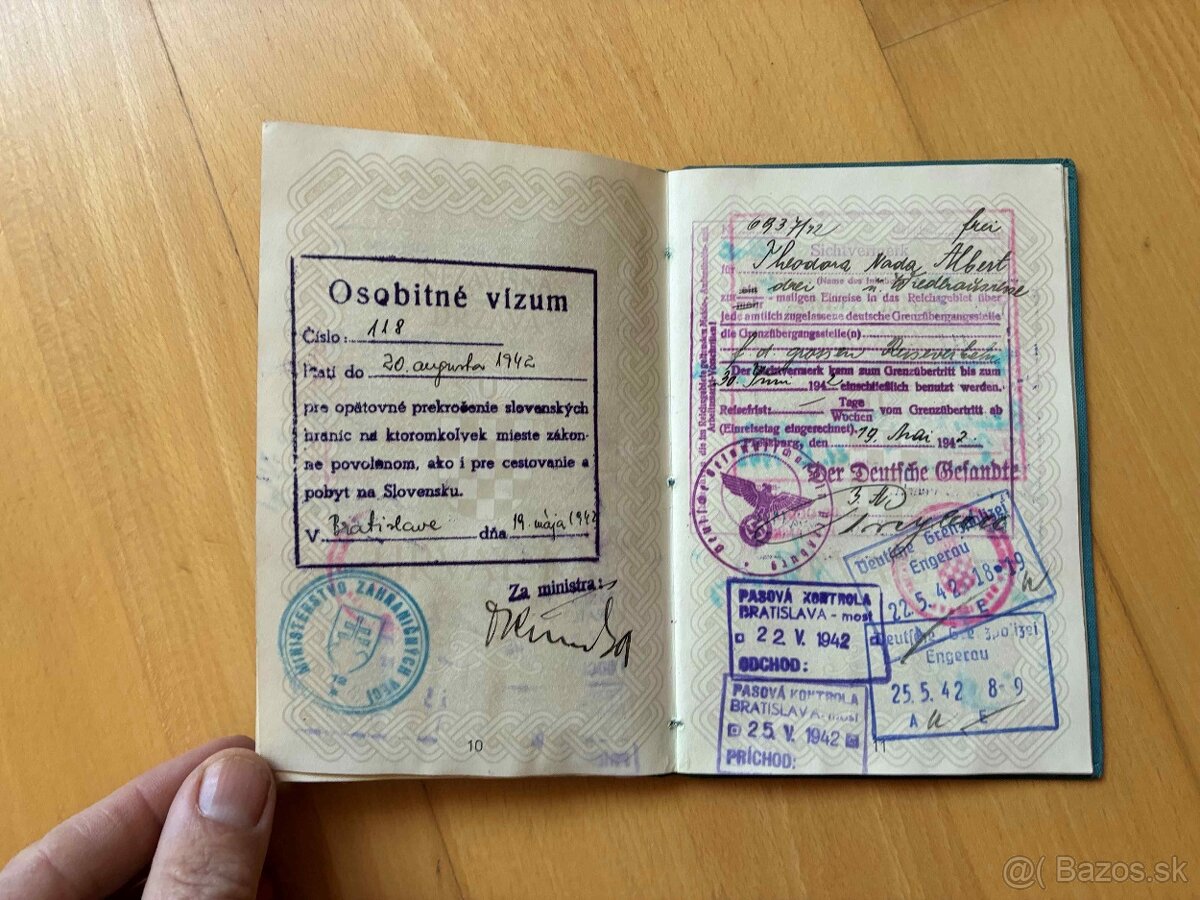 Osobitné vízum
Číslo: 118
Platí do 20. augusta 1942
pre opätovné prekročenie slovenských
hraníc na ktoromkoľvek mieste zákon-
ne povolenom, ako i pre cestovanie a
pobyt na Slovensku.
V Bratislave dňa 19. mája 1942
Za ministra:
MINISTERSTVO ZAHRANIČNÝCH VECÍ
10
6937/42 frei
Sichtvermerk
für Theodora Nada Albert
(Name des
drei u. Wiederausreise
zur maligen Einreise in das Reichsgebiet über
jede amtlich zugelassene deutsche Grenzübergangsstelle
die Grenzübergangsstelle(n)
f. d. grossen
Der Sichtvermerk kann zum Grenzübertritt bis zum
30. Juni 1942 einschließlich benutzt werden.
Reisefrist: Tage
Wochen vom Grenzübertritt ab
(Einreisetag eingerechnet).
Preßburg, den 19. Mai 1942.
Der Deutsche Gesandte
Deutsche Grenzpolizei
Engerau
22.5.42 18-19
E
PASOVÁ KONTROLA
BRATISLAVA - most
22 V. 1942
ODCHOD:
Deutsche Grenzpolizei
Engerau
25.5.42 8-9
A E
PASOVÁ KONTROLA
BRATISLAVA - most
25. V. 1942
PRÍCHOD:
11
Bazos.sk